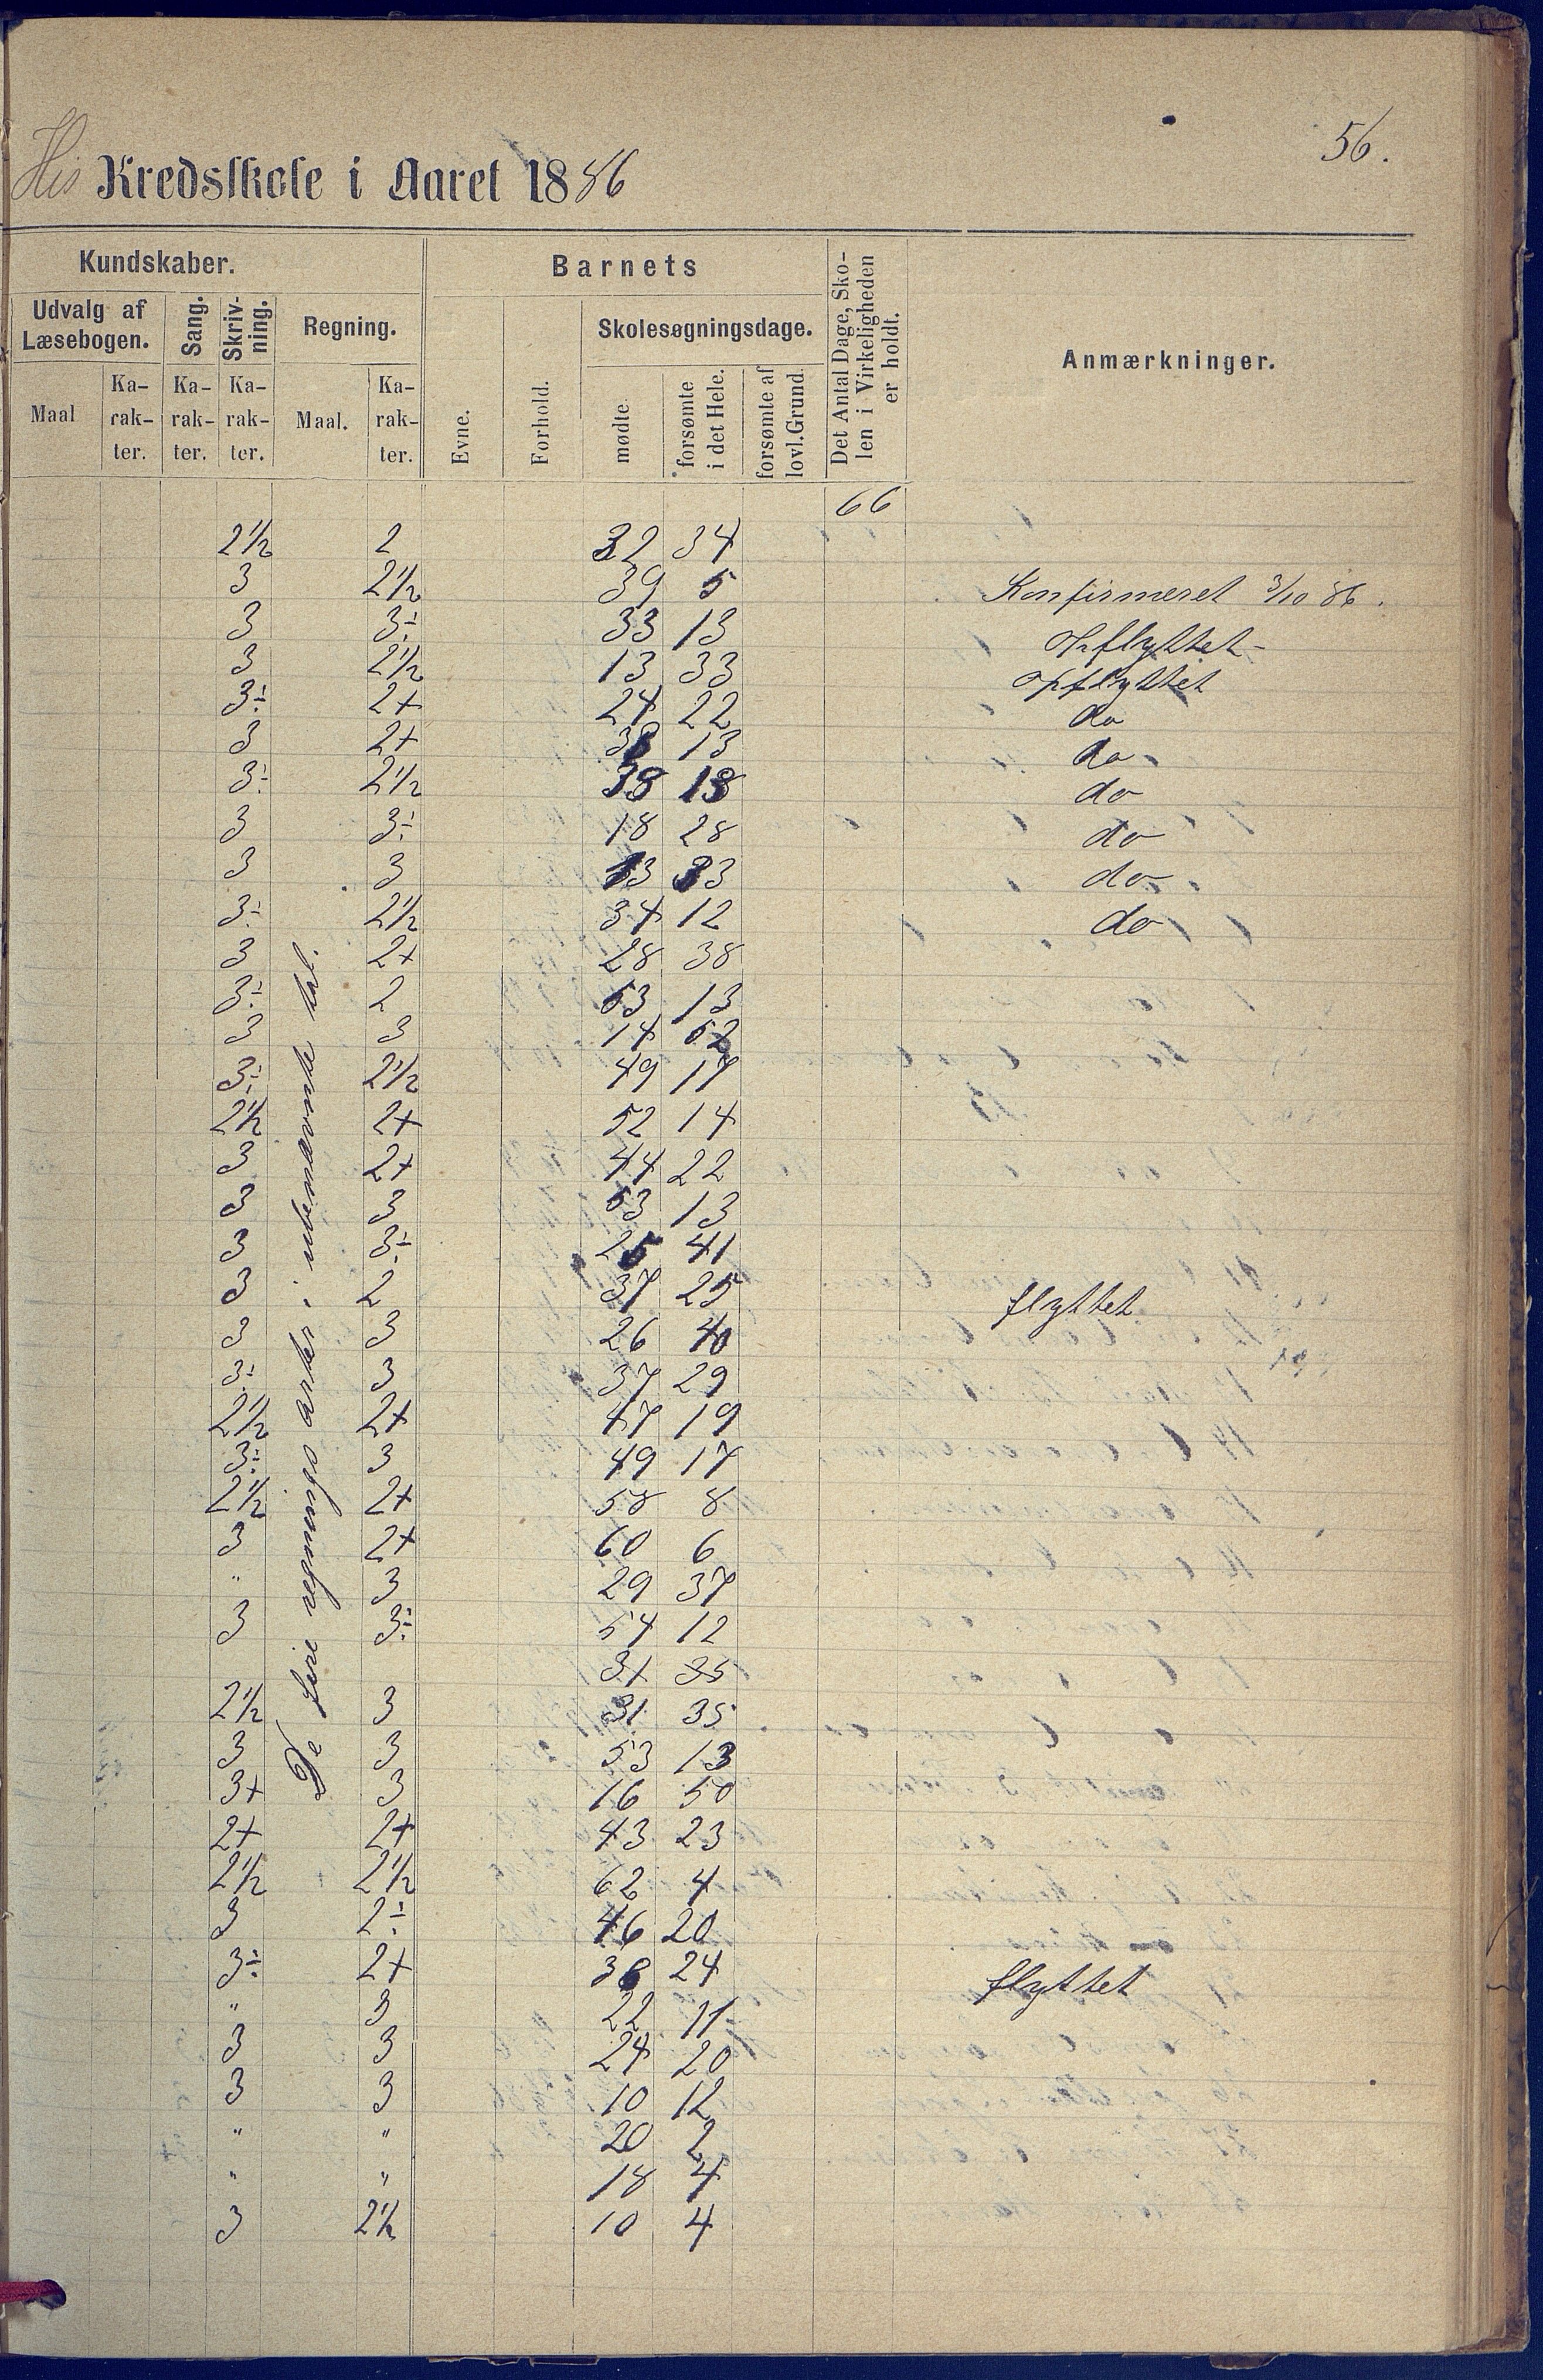 56.
His Kredsskole i Aaret 1886
Kundskaber. Barnets Det Antal Dage, Sko-
len i Virkeligheden
er holdt. Anmærkninger.
Udvalg af
Læsebogen. Sang. Skriv-
ning. Regning. Evne. Forhold. Skolesøgningsdage.
Maal Ka-
rak-
ter. Ka-
rak-
ter. Ka-
rak-
ter. Maal. Ka-
rak-
ter. mødte. forsømte
i det Hele. forsømte af
lovl. Grund.
66
2½ 2 32 34
3 2½ 39 5 Konfirmeret 3/10 86.
3 3÷ 33 13 Opflyttet
3 2½ 13 33 opflyttet
3÷ 2+ 24 22 do
3 2+ 13 do
3÷ 2½ do
3 3÷ 18 28 do
3 3 13 33 do
3÷ 2½ 34 12 do
3 2+ 28 38
3÷ 2 53 13
3 3 14 52
3÷ 2½ 49 17
2½ 2+ 52 14
3 2+ 44 22
3 3 53 13
3 3÷ 25 41
3 2 37 25 flyttet
3 3 26 40
3÷ 3 37 29
2½ 2+ 47 19
3÷ 3 49 17
2½ 2+ 58 8
3 2+ 60 6
" 3 29 37
3 3÷ 54 12
31 35
2½ 3 31 35
3 3 53 13
3+ 3 16 50
2+ 2+ 43 23
2½ 2½ 62 4
3 2÷ 46 20
3÷ 2+ 38 24 flyttet
" 3 22 11
3 3 24 20
3 3 10 12
" " 20 2
" " 18 4
3 2½ 10 4
De fire regningsarter i ubenævnte tal